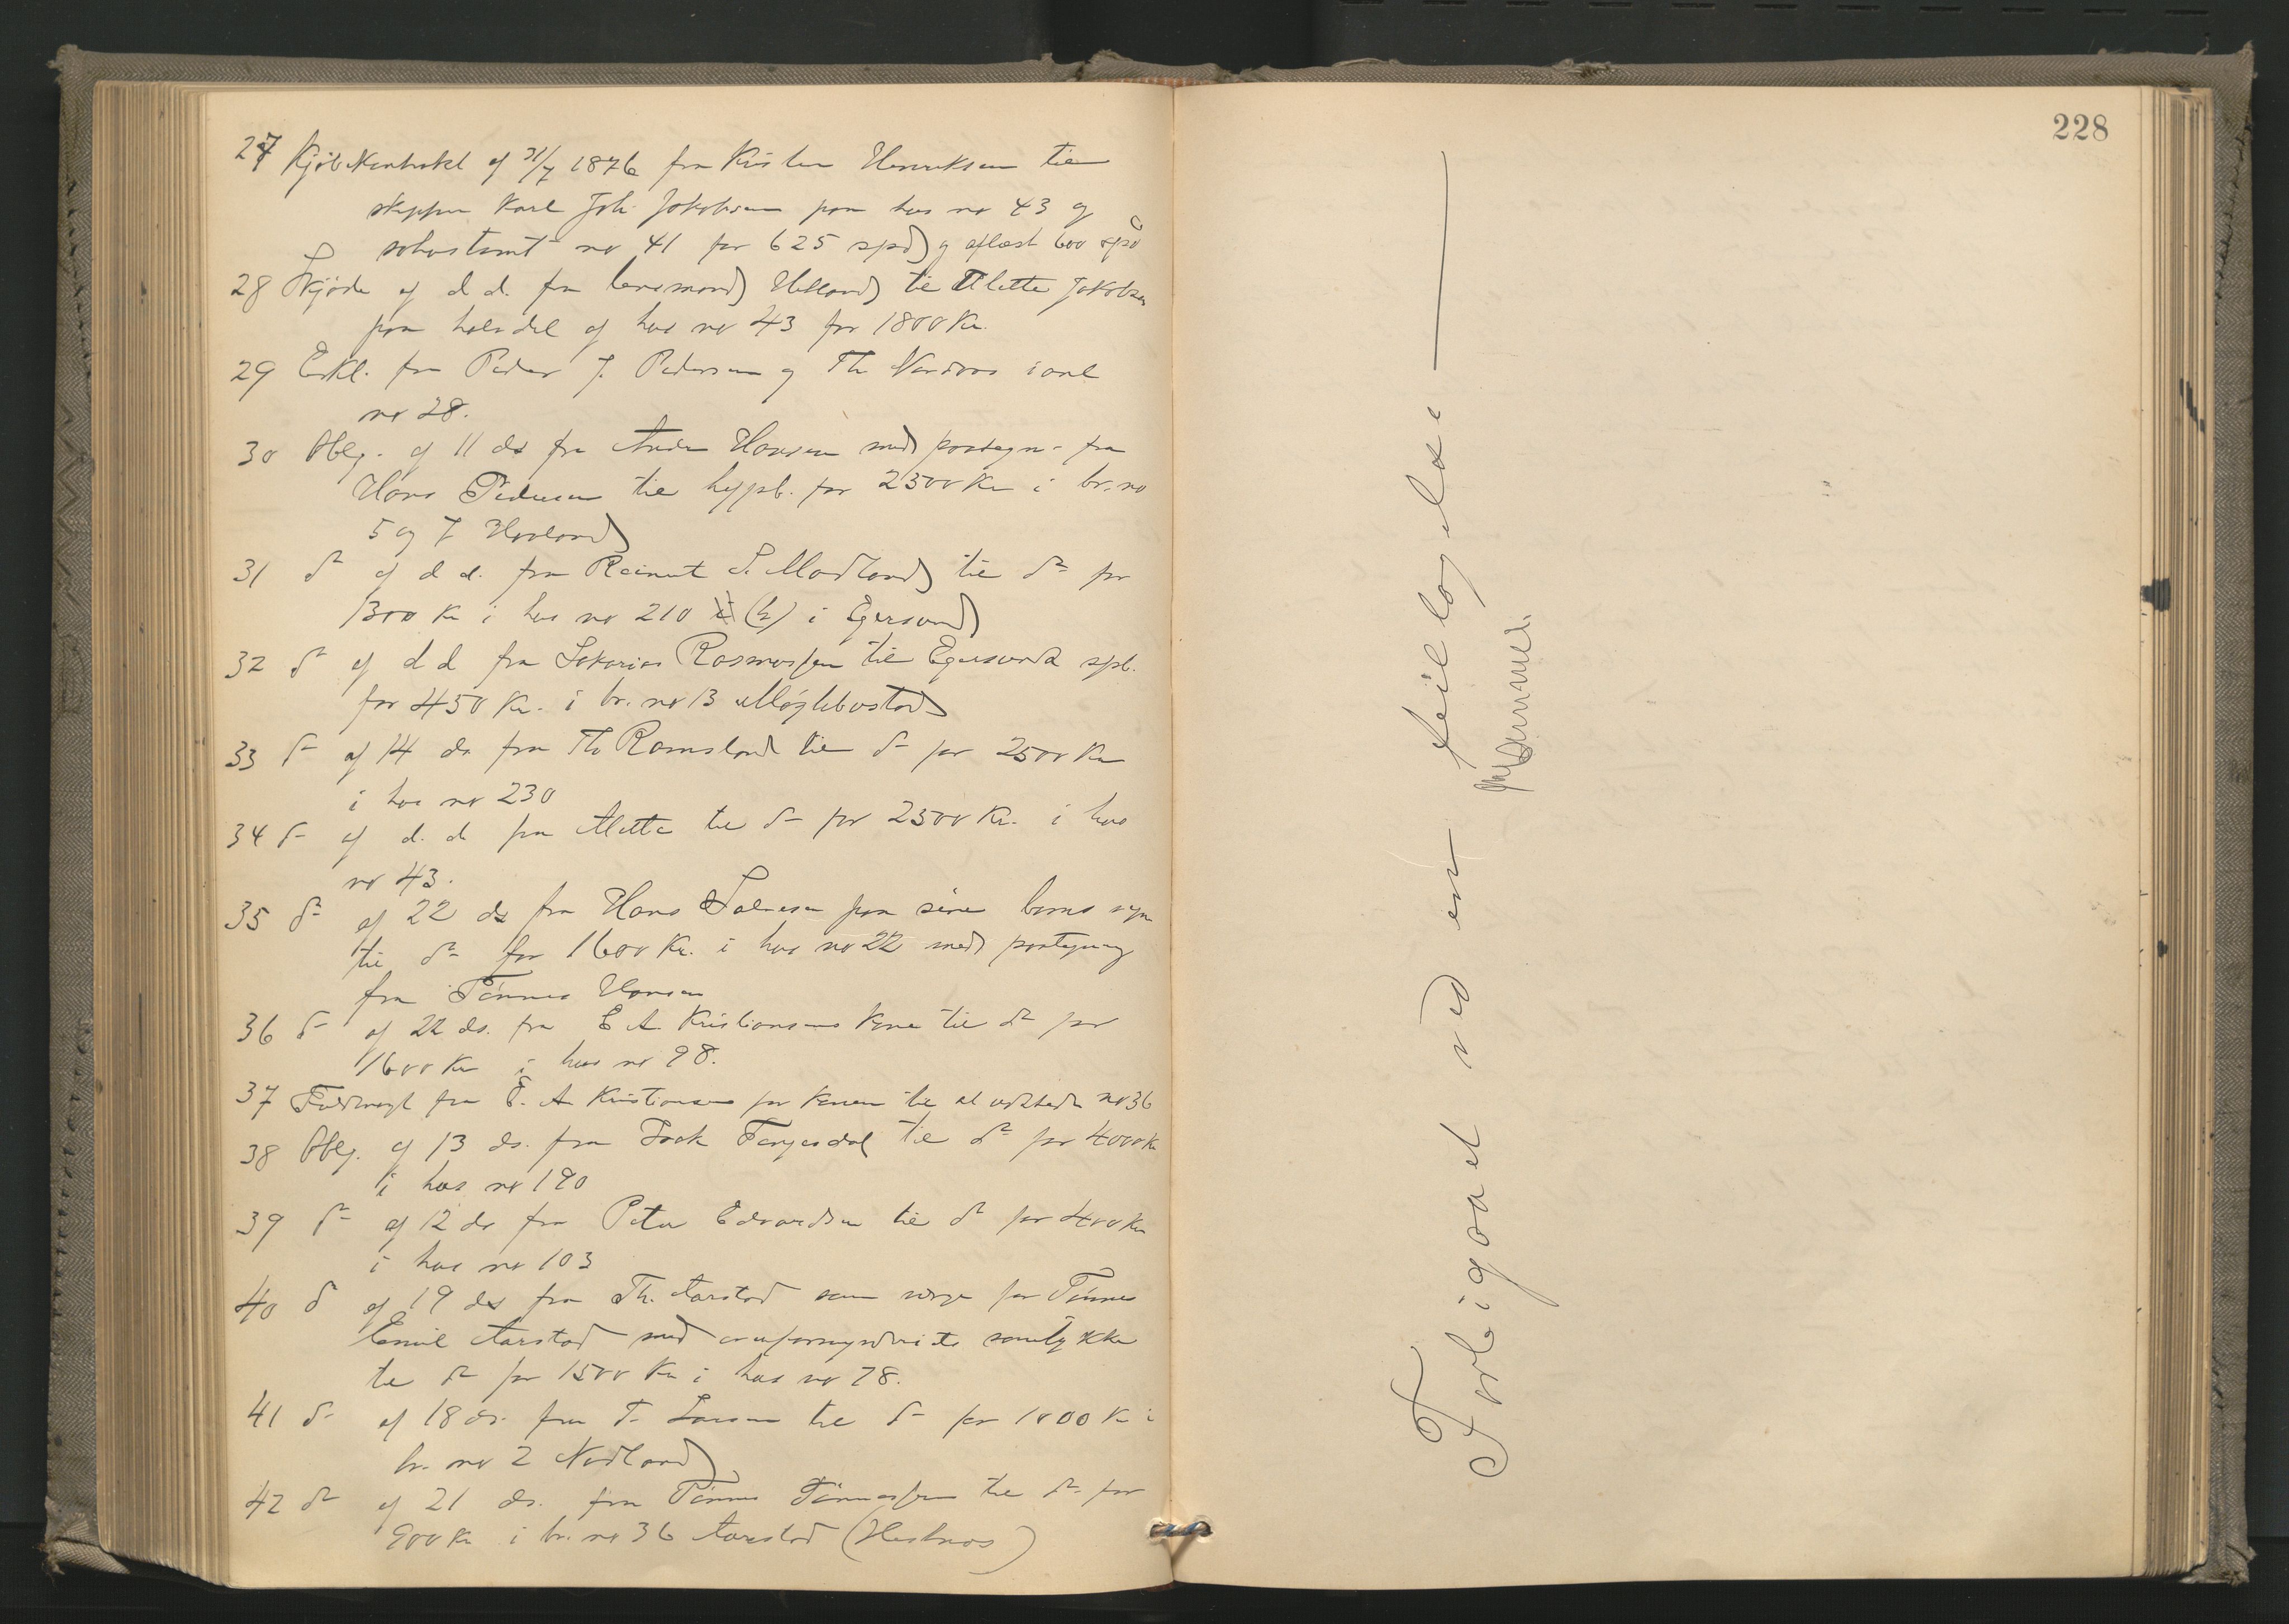 27 Kjöbekontrakt af 31/7 1876 fra Kristen Henriksen til
skipper Karl Joh. Jakobsen paa hus no 43 og
no 41 for 625 spd og aflæst 600 spd
28 Skjöde af d. d. fra lensmand Helland til Mette Jakobsen
paa halvdel af hus no 43 for 1800 Kr.
29 Erkl. fra Peder J. Pedersen og Th. i anl
no 28.
30 Oblg. af 11 ds fra Hansen med paategn. fra
Hans Pedersen til hypb. for 2300 Kr i br. no
5 og 7 Hovland
31 do af d. d. fra Reinert S. Modland til do for
1300 Kr i hus no 210 (b) i Egersund
32 do af d d fra Sakarias Rasmussen til Egersunds spb.
for 450 Kr. i br. no 13 Møglebustad
33 do af 14 ds fra Th Ramsland til do for 2500 Kr
i hus no 230
34 do af d. d fra Mette til do for 2300 Kr. i hus
no 43.
35 do af 22 ds fra Hans paa sine børns vegne
til do for 1600 Kr. i hus no 22 med paategning
fra Tönnes Hansen
36 do af 22 ds. fra E A Kristiansens kone til do for
1600 Kr i hus no 98.
37 Fuldmagt fra E. A Kristiansen for konen til at udstede no 36
38 Oblg. af 13 ds. fra til do for 4000 Kr
i hus no 190
39 do af 12 ds fra Peter Edvardsen til do for 400 Kr
i hus no 103
40 do af 19 ds fra Th. Aarstad som verge for Tönnes
Emil Aarstad med overformynderiets samtykke
til do for 1500 Kr i hus no 78.
41 do af 18 ds. fra T. Larsen til do for 1000 Kr i
br. no 2 Nodland
42 do af 21 ds. fra Tönnes Tönnessen til do for
900 Kr i br. no 36 Aarstad (Hestnes)
228
Forbigaaet ved en feiltagelse